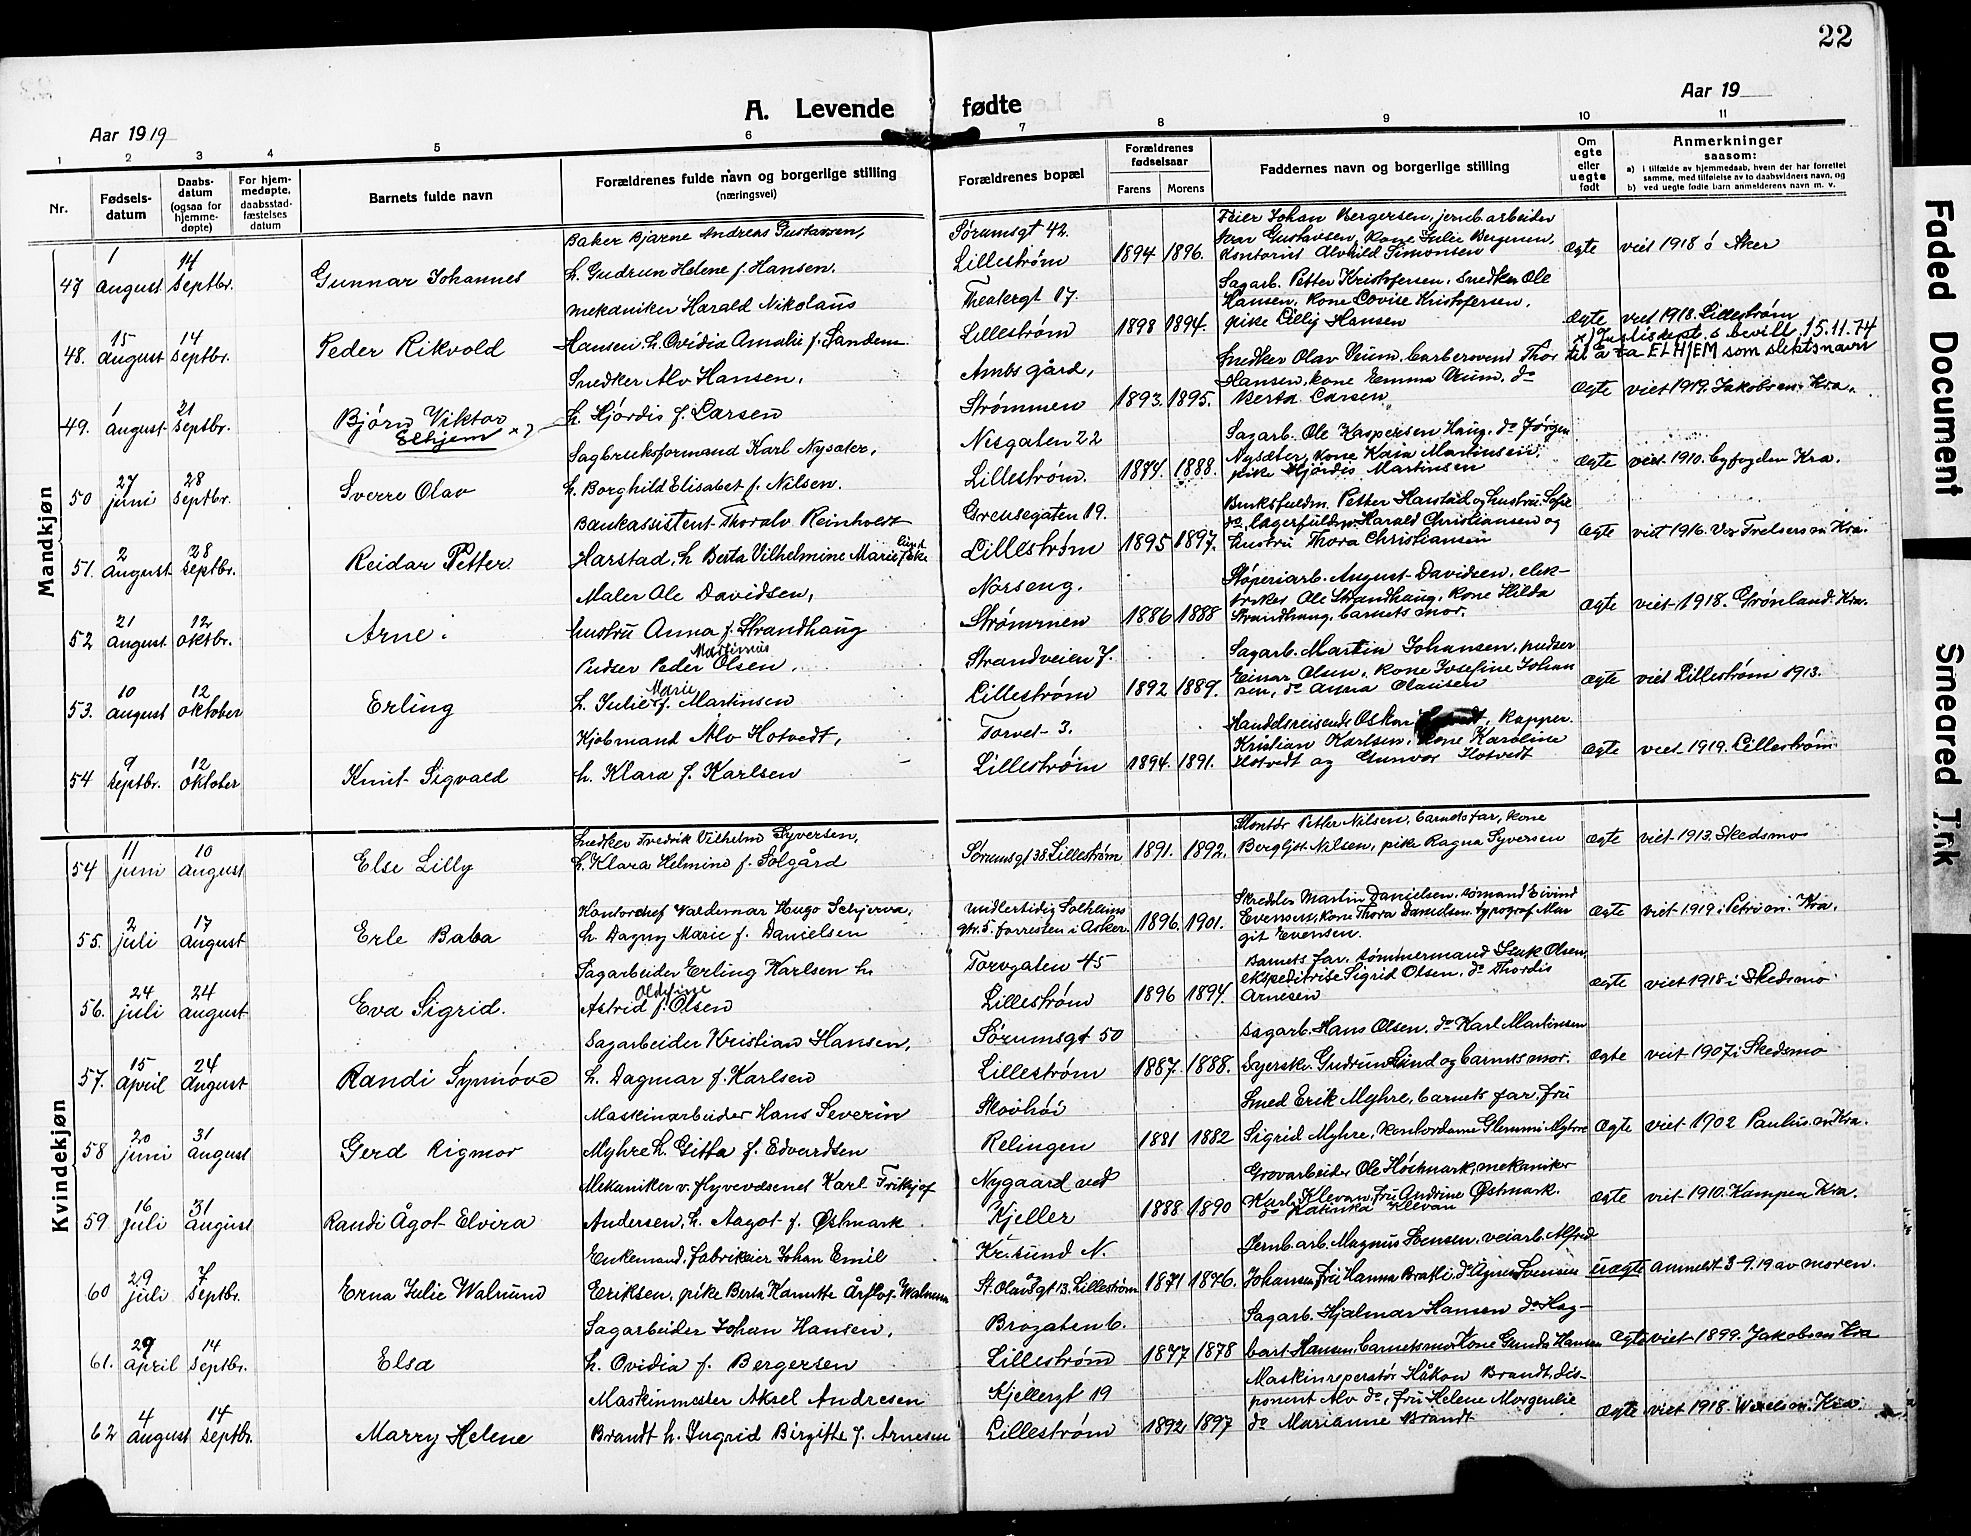 22
A. Levende fødte
Aar 1919
Aar 19
1 2 3 4 5 6 7 8 9 10 11
Nr.
Fødsels-
datum
Daabs-
datum
(ogsaa for
hjemme-
døpte)
For hjem-
medøpte,
daabsstad-
fæstelses
datum
Barnets fulde navn
Forældrenes fulde navn og borgerlige stilling
(næringsvei)
Forældrenes bopæl
Forældrenes
fødselsaar
Farens Morens
Faddernes navn og borgerlige stilling
Om
egte
eller
uegte
født
Anmerkninger
saasom:
a) i tilfælde av hjemmedaab, hvem der har forrettet
samme, med tilføielse av to daabsvidners navn, og
b) ved uegte fødte barn anmelderens navn m. v.
Mandkjøn
47 1 august 14 Septbr. Gunnar Johannes
Baker Bjarne Andreas Gustavsen,
h. Gudrun Helene f. Hansen.
Sørumsgt 42.
Lillestrøm 1894 1896.
Feier Johan Bergersen, jernb.arbeider
Ivar Gustavsen, kone Julie Bergersen,
Kontorist Alvhild Simonsen
Ægte viet 1918 i Aker
48. 15 august 14 Septbr. Peder Rikvold
Mekaniker Harald Nikolaus
Hansen, h. Ovidia Amalie f. Sandem
Theatergt 17.
Lillestrøm 1898 1894.
Sagarb. Petter Kristofersen, Snedker Ole
Hansen, kone Lovise Kristofersen,
pike Lilly Hansen
Ægte viet 1918. Lillestrøm
x) Justisdept.s bevill. 15.11.74
til å ta ELHJEM som slektsnavn
49. 1 august 21 Septbr. Bjørn Viktor
Elhjem x)
Snedker Alv Hansen,
h. Hjørdis f. Larsen
Ambs gård,
Strømmen 1893. 1895.
Snedker Olav Urum, Garversvend Thor
Hansen, kone Emma Urum, do
Berta Larsen
Ægte viet 1919. Jakobs m. Kra.
50 27 juni 28 Septbr. Sverre Olav
Sagbruksformand Karl Nysæter,
h. Borghild Elisabet f. Nilsen.
Nesgaten 22
Lillestrøm. 1874. 1888.
Sagarb. Ole Kaspersen Haug, do Jørgen
Nysæter, kone Kaia Martinsen,
pike Hjørdis Martinsen
Ægte viet 1910. byfogden Kra.
51. 2 august 28 Septbr. Reidar Petter
Bankassistent Thoralv Reinholdt
Harstad, h. Berta Vilhelmine Marie f.
Grensegaten 19.
Lillestrøm 1895 1897.
Bruksfuldm. Petter Harstad og hustru Sofie
do, lagerfuldm. Harald Christiansen og
hustru Thora Christiansen
Ægte viet 1916. Vor Frelsers m. Kra.
52 21 august 12 Oktbr. Arne
Maler Ole Davidsen,
hustru Anna f. Strandhaug
Norseng.
Strømmen 1886 1888
Støperiarb. August Davidsen, elek-
triker Ole Strandhaug, kone Hilda
Strandhaug, barnets mor.
Ægte viet 1918. Grønland. Kra.
53. 10 august 12 oktober Erling
Pudser Peder Martinius Olsen,
h. Julie Marie f. Martinsen
Strandveien 7.
Lillestrøm 1892 1889.
Sagarb. Martin Johansen, pudser
Einar Olsen, kone Josefine Johan
sen, do Anna Olausen
Ægte viet Lillestrøm 1913.
54 9 Septbr. 12 oktober Knut Sigvald
Kjøbmand Alv Hotvedt,
h. Klara f. Karlsen
Torvet 3.
Lillestrøm 1894. 1891.
Handelsreisende Oskar Hotvedt, kapper
Kristian Karlsen, kone Karoline
Hotvedt og Gunvor Hotvedt
Ægte viet 1919. Lillestrøm
Kvindekjøn
54 11 juni 10 August Else Lilly
Snedker Fredrik Vilhelm Syversen,
h. Klara Helmine f. Solgård
Sørumsgt 38. Lillestrøm 1891. 1892.
Montør Petter Nilsen, barnets far, kone
Bergljot Nilsen, pike Ragna Syversen
Ægte viet 1913. Skedsmo
55. 2 juli 17 August Erle Baba
Kontorchef Valdemar Hugo Schjerva,
h. Dagny Marie f. Danielsen
midlertidig Solheims
gt. 5. forresten i Asker. 1896. 1901.
Skredder Martin Danielsen, sømand Eivind
Evensen, kone Thora Danielsen, typograf Mar
git Evensen.
Ægte viet 1919 i Petri m. Kra.
56. 24 juli 24 august Eva Sigrid.
Sagarbeider Erling Karlsen h.
Astrid Oldfine f. Olsen
Torvgaten 45
Lillestrøm 1896 1894.
Barnets far, tømmermand Isak Olsen,
ekspeditrise Sigrid Olsen, do Thordis
Arnesen
Ægte viet 1918 i Skedsmo
57. 15 April 24 august Randi Synnøve
Sagarbeider Kristian Hansen,
h. Dagmar f. Karlsen
Sørumsgt 50
Lillestrøm 1887. 1888.
Sagarb. Hans Olsen, do Karl Martinsen
Syersk. Gudrun Lund og barnets mor.
Ægte viet 1907 i Skedsmo
58 20 juni 31 august Gerd Rigmor
Maskinarbeider Hans Severin
Myhre h. Gitta f. Edvardsen
Skovhøi
Relingen 1881 1882
Smed Erik Myhre, barnets far, fru
Sigrid Myhre, kontordame Myhre
Ægte viet 1902 Paulus m Kra.
59. 16 juli 31 august Randi Ågot Elvira
Mekaniker v. flyvevæsenet Karl Fritjof
Andersen, h. Aagot f. Østmark
Nygaard ved
Kjeller 1888 1890
Grovarbeider Ole Høstmark, mekaniker
Karl Klevan, fru Andrine Østmark.
do Katinka Klevan
Ægte viet 1910. Kampen Kra.
60 29 juli 7 Septbr. Erna Julie Walrund
Enkemand, fabrikeier Johan Emil
Eriksen, pike Berta Hanette
Kr.sund N.
St. Olavsgt 13. Lillestrøm 1871 1876.
Jernb.arb. Magnus Svensen, veiarb. Alfred
Johansen, Fru Hanna Bratli, do Agnes Svensen
Uægte anmeldt 3-9.19 av moren.
61. 29 April 14 Septbr. Elsa
Sagarbeider Johan Hansen,
h. Ovidia f. Bergersen
Brogaten 6.
Lillestrøm 1877 1878
Sagarb. Hjalmar Hansen do Hag-
bart Hansen, barnets mor, kone Gunda Hansen
Ægte viet 1899. Jakobs m Kra
62 4 august 14 Septbr. Marry Helene
Maskinmester Aksel Andresen
Brandt h. Ingrid Birgitte f. Arnesen
Kjellergt 19
Lillestrøm 1892 1897
Maskinreperatør Håkon Brandt, dis-
ponent Alv do, fru Helene Morgenlie
do Marianne Brandt
Ægte viet 1918. Wexels m. Kra.
Faded Document
Smeared Ink